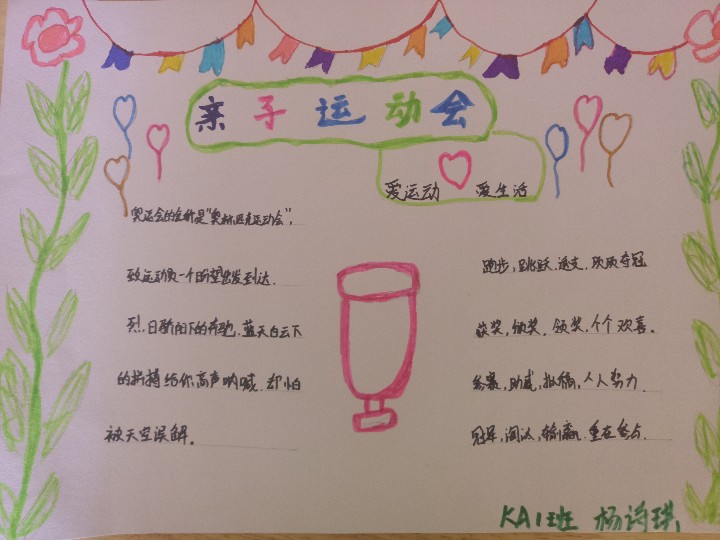 亲子运动会
爱运动 爱生活
奥运会的全称是"奥林匹克运动会",
致运动员一个盼望出发到达.
烈日骄阳下的奔跑.蓝天白云下
的拼搏给你高声呐喊.却怕
被天空误解.
跑步,跳跃.夺冠
获奖,颁奖.领奖,个个欢喜。
参赛,助威,投稿,人人努力.
冠军,淘汰,输赢.重在参与.
KA1班 杨诗琪